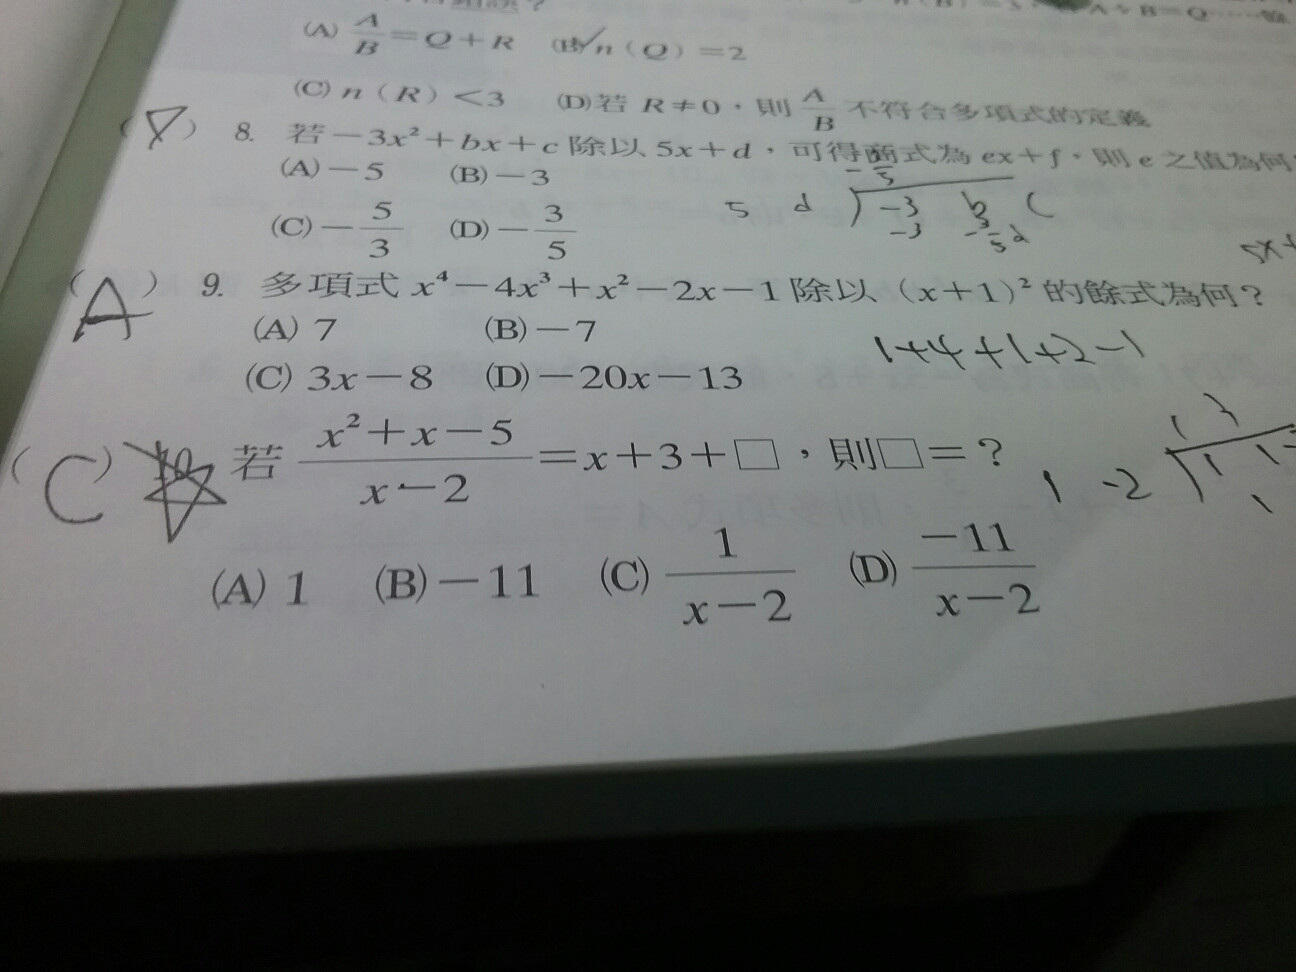 A÷B=Q……餘
(A) A/B=Q+R (B)✓n(Q)=2
(C) n(R)<3 (D)若 R≠0，則 A/B 不符合多項式的定義
8. 若－3x²+bx+c 除以 5x+d，可得商式為 ex+f，則 e 之值為何
(A)－5 (B)－3
5 d -3 b c
(C)－5/3 (D)－3/5
-3
(A) 9. 多項式 x⁴－4x³+x²－2x－1 除以 (x+1)² 的餘式為何？
(A) 7 (B)－7
1+4+1+2-1
(C) 3x－8 (D)－20x－13
1 3
(C) 若 (x²+x－5)/(x－2)=x+3+□，則□=？
1 -2 1 1
(A) 1 (B)－11 (C) 1/(x－2) (D) －11/(x－2)